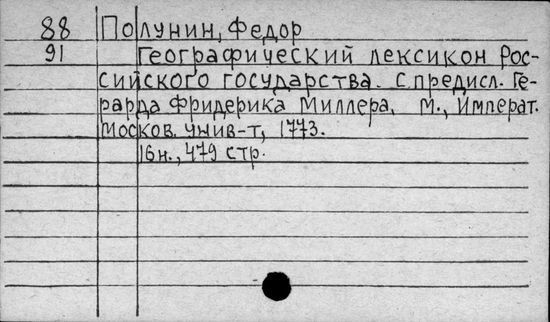 88 Полунин, Федор
91 Географический лексикон Рос-
сийского государства. С предисл. Ге-
рарда Фридерика Миллера. М., Императ.
Москов. унив-т, 1773.
16н., 479 стр.